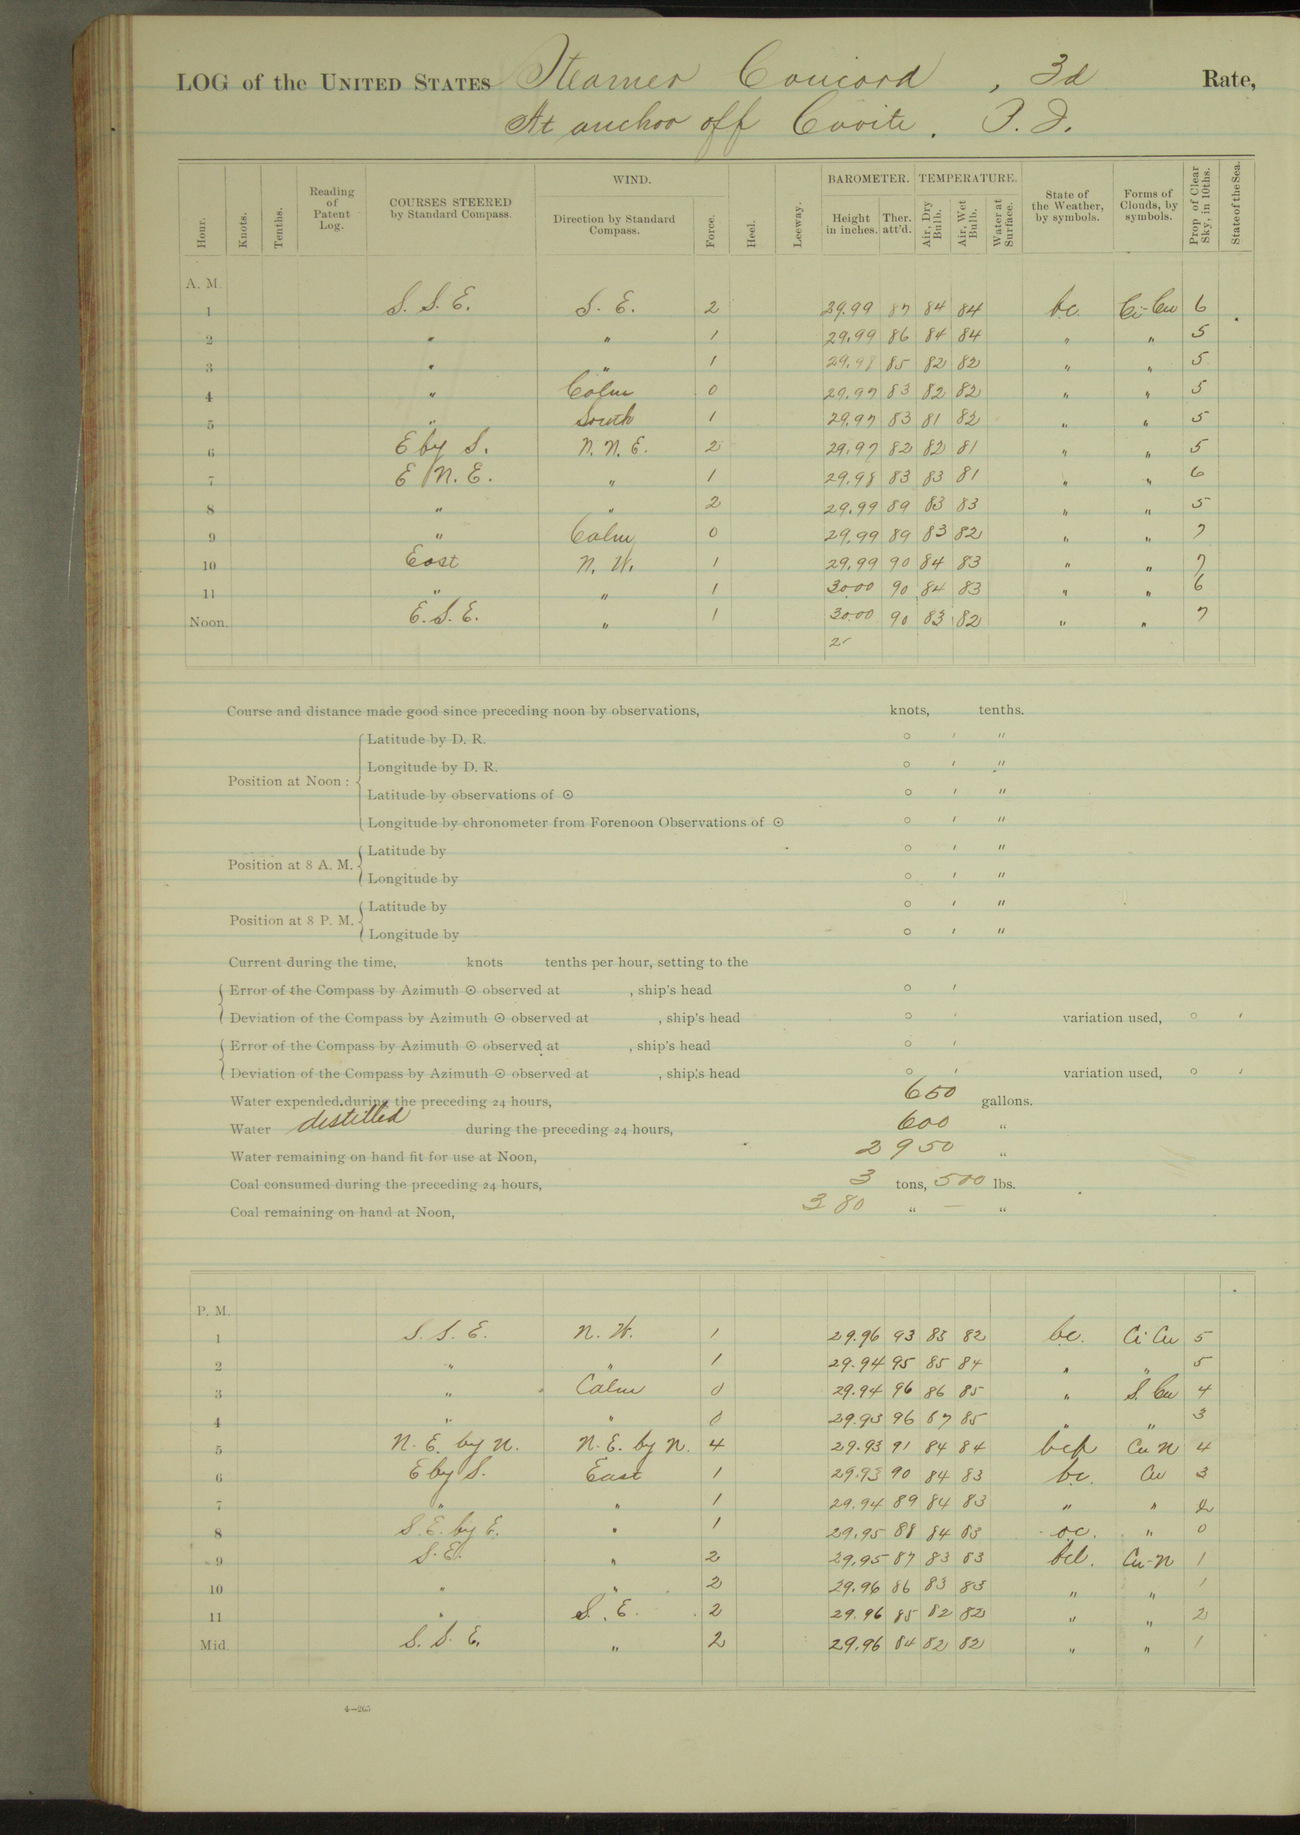 LOG of the UNITED STATES Steamer Concord, 3d Rate,
At anchor off Cavite. P. I.
Hour. Knots. Tenths. Reading of Patent Log. COURSES STEERED by Standard Compass. WIND. Direction by Standard Compass. Force. Heel. Leeway. BAROMETER. Height in inches. Ther. att'd. TEMPERATURE. Air, Dry Bulb. Air, Wet Bulb. Water at Surface. State of the Weather, by symbols. Forms of Clouds, by symbols. Prop. of Clear Sky, in 10ths. State of the Sea.
A. M.
1 S. S. E. S. E. 2 29.99 87 84 84 bc. Ci-Cu 6
2 " " 1 29.99 86 84 84 " " 5
3 " " 1 29.98 85 82 82 " " 5
4 " Calm 0 29.97 83 82 82 " " 5
5 " South 1 29.97 83 81 82 " " 5
6 E by S. N. N. E. 2 29.97 82 82 81 " " 5
7 E N. E. " 1 29.98 83 83 81 " " 6
8 " " 2 29.99 89 83 83 " " 5
9 " Calm 0 29.99 89 83 82 " " 7
10 East N. W. 1 29.99 90 84 83 " " 7
11 " " 1 30.00 90 84 83 " " 6
Noon. E. S. E. " 1 30.00 90 83 82 " " 7
2
Course and distance made good since preceding noon by observations, knots, tenths.
Position at Noon:
Latitude by D. R. ° ′ ″
Longitude by D. R. ° ′ ″
Latitude by observations of ☉ ° ′ ″
Longitude by chronometer from Forenoon Observations of ☉ ° ′ ″
Position at 8 A. M.
Latitude by ° ′ ″
Longitude by ° ′ ″
Position at 8 P. M.
Latitude by ° ′ ″
Longitude by ° ′ ″
Current during the time, knots tenths per hour, setting to the
Error of the Compass by Azimuth ☉ observed at , ship's head ° ′
Deviation of the Compass by Azimuth ☉ observed at , ship's head ° ′ variation used, ° ′
Error of the Compass by Azimuth ☉ observed at , ship's head ° ′
Deviation of the Compass by Azimuth ☉ observed at , ship's head ° ′ variation used, ° ′
Water expended during the preceding 24 hours, 650 gallons.
Water distilled during the preceding 24 hours, 600 "
Water remaining on hand fit for use at Noon, 2950 "
Coal consumed during the preceding 24 hours, 3 tons, 500 lbs.
Coal remaining on hand at Noon, 380 " — "
P. M.
1 S. S. E. N. W. 1 29.96 93 83 82 bc. Ci Cu 5
2 " " 1 29.94 95 85 84 " " 5
3 " Calm 0 29.94 96 86 85 " S. Cu 4
4 " " 0 29.93 96 87 85 " " 3
5 N. E. by N. N. E. by N. 4 29.93 91 84 84 bcp Cu N 4
6 E by S. East 1 29.93 90 84 83 bc. Cu 3
7 " " 1 29.94 89 84 83 " " 2
8 S. E. by E. " 1 29.95 88 84 83 oc. " 0
9 S. E. " 2 29.95 87 83 83 bcl. Cu-N 1
10 " " 2 29.96 86 83 83 " " 1
11 " S. E. 2 29.96 85 82 82 " " 2
Mid. S. S. E. " 2 29.96 84 82 82 " " 1
4—265